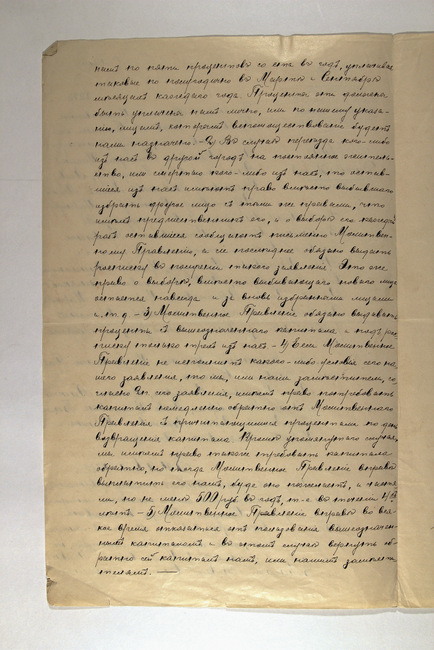 намъ по пяти процентовъ со ста въ годъ, уплачивая
таковые по полугодично въ Мартѣ и Сентябрѣ
мѣсяцахъ каждаго года. Проценты эти должны
быть уплачены намъ лично, или по нашему указа-
нію, лицамъ, которымъ вспомоществованіе будетъ
нами назначено. — 2) Въ случаѣ переѣзда кого-либо
изъ насъ въ другой городъ на постоянное житель-
ство, или смерти кого-либо изъ насъ, то остав-
шіеся изъ насъ имѣютъ право вмѣсто выбывшаго
избрать другое лицо съ тѣми же правами, что
имѣлъ предшественникъ его, и о выборѣ его каждый
разъ оставшіеся сообщаютъ письменно Молитвен-
ному Правленію, а сіе послѣднее обязано выдать
росписку въ полученіи такого заявленія. Это же
право о выборѣ, вмѣсто выбывающаго новаго лица
остается навсегда и за вновь избранными лицами
и т. д. — 3) Молитвенное Правленіе обязано выдавать
проценты съ вышеозначеннаго капитала и подъ рос-
писку только троихъ изъ насъ. — 4) Если Молитвенное
Правленіе не исполнитъ какого-либо условія сего на-
шего заявленія, то мы, или наши замѣстители, со-
гласно сего заявленія, имѣемъ право потребовать
капиталъ немедленно обратно отъ Молитвеннаго
Правленія съ причитающимися процентами по день
возвращенія капитала. Кромѣ упомянутаго случая
мы, имѣемъ право также требовать капиталъ
обратно, но тогда Молитвенное Правленіе вправѣ
выплатить его намъ, буде оно пожелаетъ, и частя-
ми, но не менѣе 500 руб. въ годъ, т.-е. въ теченіи
лѣтъ. — 5) Молитвенное Правленіе вправѣ во вся-
кое время отказаться отъ пользованія вышеозначен-
нымъ капиталомъ и въ этомъ случаѣ вернуть об-
ратно сей капиталъ намъ, или нашимъ замѣсти-
телямъ. —